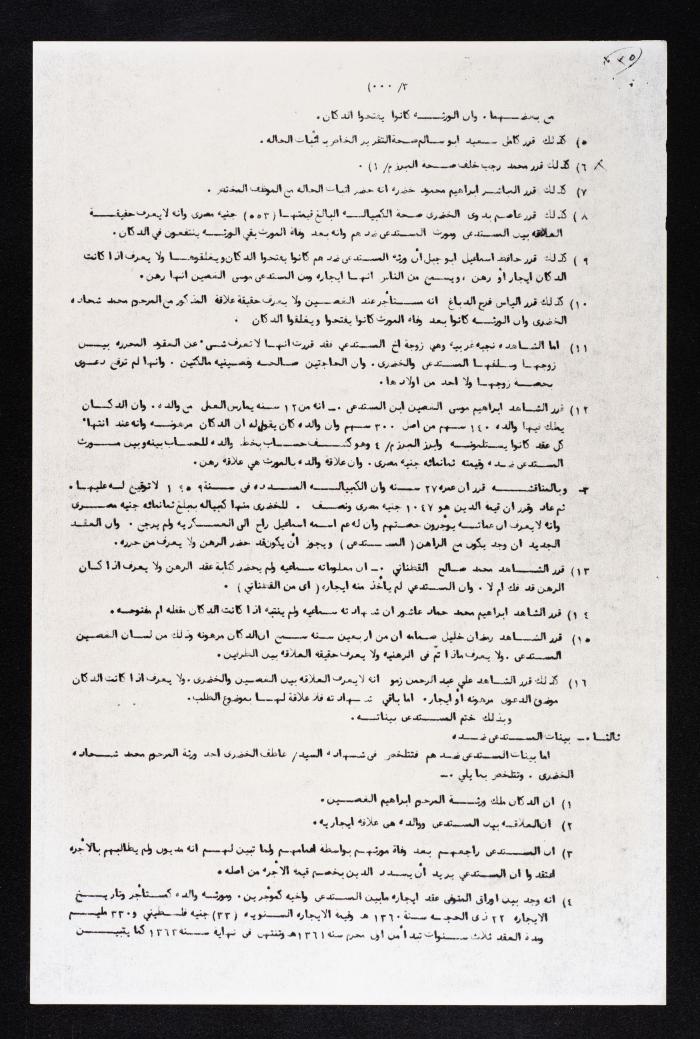 ٢٢٥
٣/ ٠٠٠)
مع بعضهما ٠ وان الورثه كانوا يفتحوا الدكان ٠
٥) كذلك قرر كامل سعيد ابو سالم صحة التقرير الخاص باثبات الحاله ٠
٦) كذلك قرر محمد رجب خلف صحه المبرز م/ ١) ٠
٧) كذلك قرر المباشر ابراهيم محمود خضره انه حضر اثبات الحاله مع الموظف المختص ٠
٨) كذلك قرر عاصم بدوى الخضرى صحة الكمبياله البالغ قيمتها (٥٥٣) جنيه مصرى وانه لا يعرف حقيقة
العلاقه بين المستدعى ومورث المستدعى ضدهم وانه بعد وفاة المورث بقي الورثه ينتفعون في الدكان ٠
٩) كذلك قرر حافظ اسماعيل ابو جبل أن ورثه المستدعى ضدهم كانوا يفتحوا الدكان ويغلقوها ولا يعرف اذا كانت
الدكان ايجار أو رهن ، ويسمع من الناس انها ايجاره ومن المستدعى موسى الغصين انها رهن ٠
١٠) كذلك قرر الياس فرح الدباغ انه مستأجر عند الغصين ولا يعرف حقيقة علاقة المذكور مع المرحوم محمد شحاده
الخضرى وان الورثه كانوا بعد وفاة المورث كانوا يفتحوا ويغلقوا الدكان ٠
١١) اما الشاهده نجيه غربيه وهي زوجة اخ المستدعي فقد قررت انها لا تعرف شىء عن العقود المحرره بين
زوجها وسلفها المستدعى والخضرى ٠ وان الحاجتين صالحه وغصينيه مالكتين ٠ وانها لم ترفع دعوى
بحصه زوجها ولا احد من اولادها ٠
١٢) قرر الشاهد ابراهيم موسى الغصين ابن المستدعى ٠ـ انه من ١٢ سنه يمارس العمل مع والده ٠ وان الدكان
يملك فيها والده ١٤٠ سهم من اصل ٣٠٠ سهم وان والده كان يقول له ان الدكان مرهونه وانه عند انتهاء
كل عقد كانوا يستلمونه وابرز المبرز م/ ٤ وهو كشف حساب بخط والده للحساب بينه وبين مورث
المستدعى ضده وقيمته ثمانمائه جنيه مصرى ٠ وان علاقة والده بالمورث هي علاقة رهن ٠
ـ٣ وبالمناقشه قرر ان عمره ٢٧ سنه وان الكمبياله المسدده في سنة ١٩٥٩ لا توقيع له عليها ٠
ثم عاد وقرر ان قيمة الدين هو ١٠٤٧ جنيه مصرى ونصف ٠ للخضرى منها كمبياله بمبلغ ثمانمائه جنيه مصرى
وانه لا يعرف ان عماته يؤجرون حصتهم وان له عم اسمه اسماعيل راح الى العسكريه ولم يرجع ٠ وان العقد
الجديد ان وجد يكون مع الراهن ( المستدعى ) ويجوز أن يكون قد حضر الرهن ولا يعرف من حرره ٠
١٣) قرر الشاهد محمد صالح القطناني ٠ـ ان معلوماته سماعيه ولم يحضر كتابة عقد الرهن ولا يعرف اذا كان
الرهن قد فك ام لا ٠ وان المستدعي لم يأخذ منه ايجاره ( اى من القطناني ) ٠
١٤) قرر الشاهد ابراهيم محمد حماد عاشور ان شهادته سماعيه ولم ينتبه اذا كانت الدكان مقفله ام مفتوحه ٠
١٥) قرر الشاهد رمضان خليل صمامه ان من اربعين سنه سمع ان الدكان مرهونه وذلك من لسان الغصين
المستدعى ٠ ولا يعرف ماذا تم في الرهنيه ولا يعرف حقيقه العلاقه بين الطرفين ٠
١٦) كذلك قرر الشاهد علي عبد الرحمن زمو انه لا يعرف العلاقه بين الغصين والخضرى ٠ ولا يعرف اذا كانت الدكان
موضوع الدعوى مرهونه أو ايجار ٠ اما باقي شهادته فلا علاقة لها بموضوع الطلب ٠
وبذلك ختم المستدعى بيناته ٠
ثالثا ٠ـ بينات المستدعى ضده
اما بينات المستدعى ضدهم فتتلخص في شهاده السيد/ عاطف الخضرى احد ورثة المرحوم محمد شحاده
الخضرى ٠ وتتلخص بما يلي ٠ـ
١) ان الدكان ملك ورثة المرحوم ابراهيم الغصين ٠
٢) ان العلاقه بين المستدعى ووالده هي علاقة ايجاريه ٠
٣) ان المستدعى راجعهم بعد وفاة مورثهم بواسطة اعمامهم ولما تبين لهم انه مديون ولم يطالبهم بالأجره
اعتقدوا ان المستدعى يريد أن يسدد الدين بخصم قيمه الأجره من اصله ٠
٤) انه وجد بين اوراق المتوفى عقد ايجاره مابين المستدعى واخيه كمؤجرين ٠ ومورثه والده كمستأجر وتاريخ
الايجاره ٢٢ ذى الحجه سنة ١٣٦٠ هـ وقيمة الايجاره السنويه (٣٣) جنيه فلسطيني و ٣٣٠ مليم
ومدة العقد ثلاث سنوات تبدأ من اول محرم سنه ١٣٦١هـ وتنتهى في نهاية سنه ١٣٦٣ كما يتبين